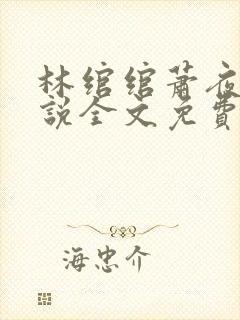 林绾绾萧夜
說全文免費
海忠介